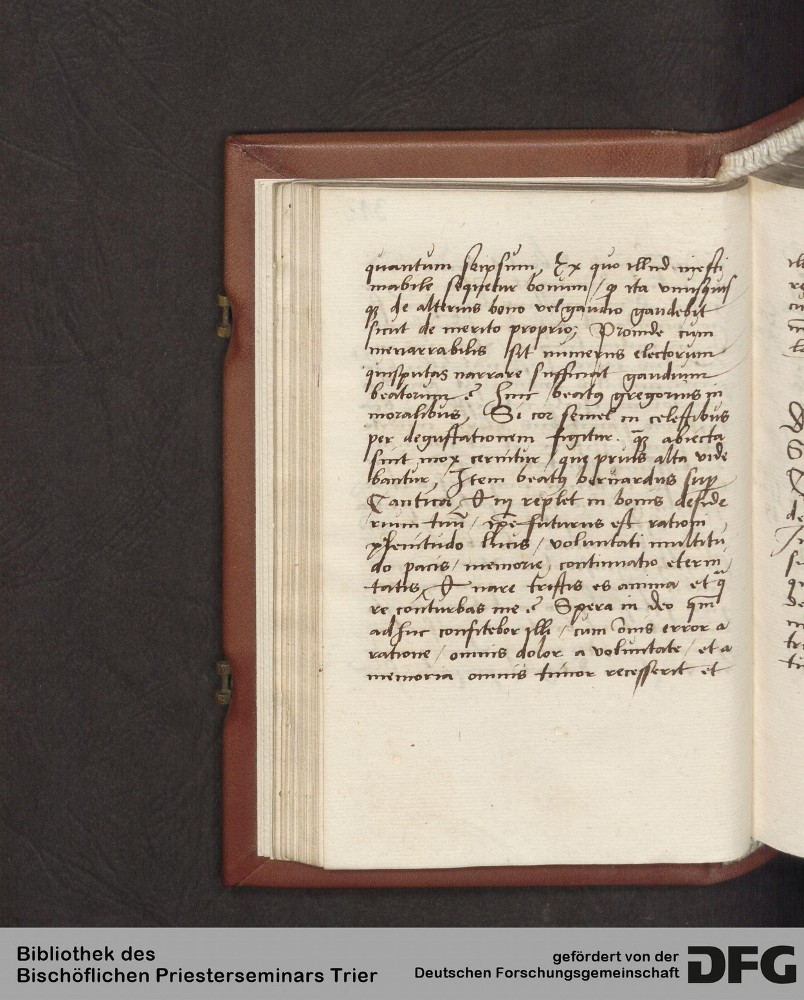 quantum seipsum, Ex quo illud inesti
mabile sequetur bonum / qꝫ ita vnusquis
qꝫ de alterius bono vel gaudio gaudebit
sicut de merito proprio; Proinde cum
inenarrabilis sit numerus electorum
quis putas narrare sufficiat gaudium
beatorum ? Hinc beatꝰ gregorius in
moralibus, Si cor semel in celestibus
per degustationem figitur. qꝫ abiecta
sint mox cernitur / que prius alta vide
bantur, Item beatꝰ bernardus sup
Cantica, Q replet in bonis deside
rium tuū / ipē futurus est rationi
plenitudo lucis / voluntati multitu
do pacis / memorie, continuatio eterni
tatis, Quare tristis es anima et q̄
re conturbas me ? Spera in deo qm̄
adhuc confitebor illi / cum om̄is error a
ratione / omnis dolor a voluntate / et a
memoria omnis timor recesserit et
Bibliothek des
Bischöflichen Priesterseminars Trier
gefördert von der
Deutschen Forschungsgemeinschaft
DFG